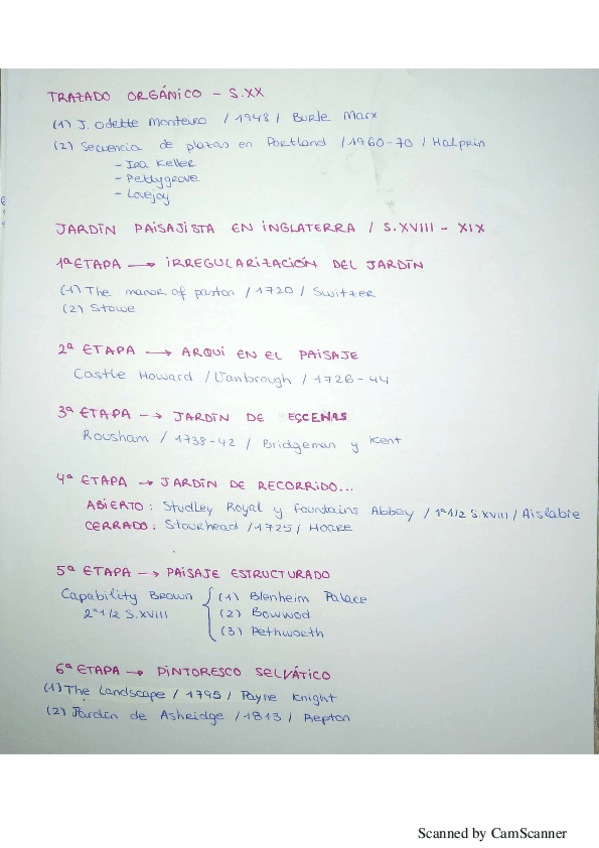 TRAZADO ORGÁNICO - S.XX
(1) J. Odette Monteiro / 1948 / Burle Marx
(2) Secuencia de plazas en Portland / 1960-70 / Halprin
- Ira Keller
- Pettygrove
- Lovejoy
JARDÍN PAISAJISTA EN INGLATERRA / S.XVIII - XIX
1ª ETAPA → IRREGULARIZACIÓN DEL JARDÍN
(1) The manor of paston / 1720 / Switzer
(2) Stowe
2ª ETAPA → ARQUI EN EL PAISAJE
Castle Howard / Vanbrough / 1726-44
3ª ETAPA → JARDÍN DE ESCENAS
Rousham / 1738-42 / Bridgeman y Kent
4ª ETAPA → JARDÍN DE RECORRIDO...
ABIERTO: Studley Royal y Fountains Abbey / 1ª 1/2 S.XVIII / Aislabie
CERRADO: Stourhead / 1725 / HOARE
5ª ETAPA → PAISAJE ESTRUCTURADO
Capability Brown { (1) Blenheim Palace
2ª 1/2 S.XVIII (2) Bowwod
(3) Pethworth
6ª ETAPA → PINTORESCO SELVÁTICO
(1) The Landscape / 1795 / Payne Knight
(2) Jardín de Asheidge / 1813 / Repton
Scanned by CamScanner